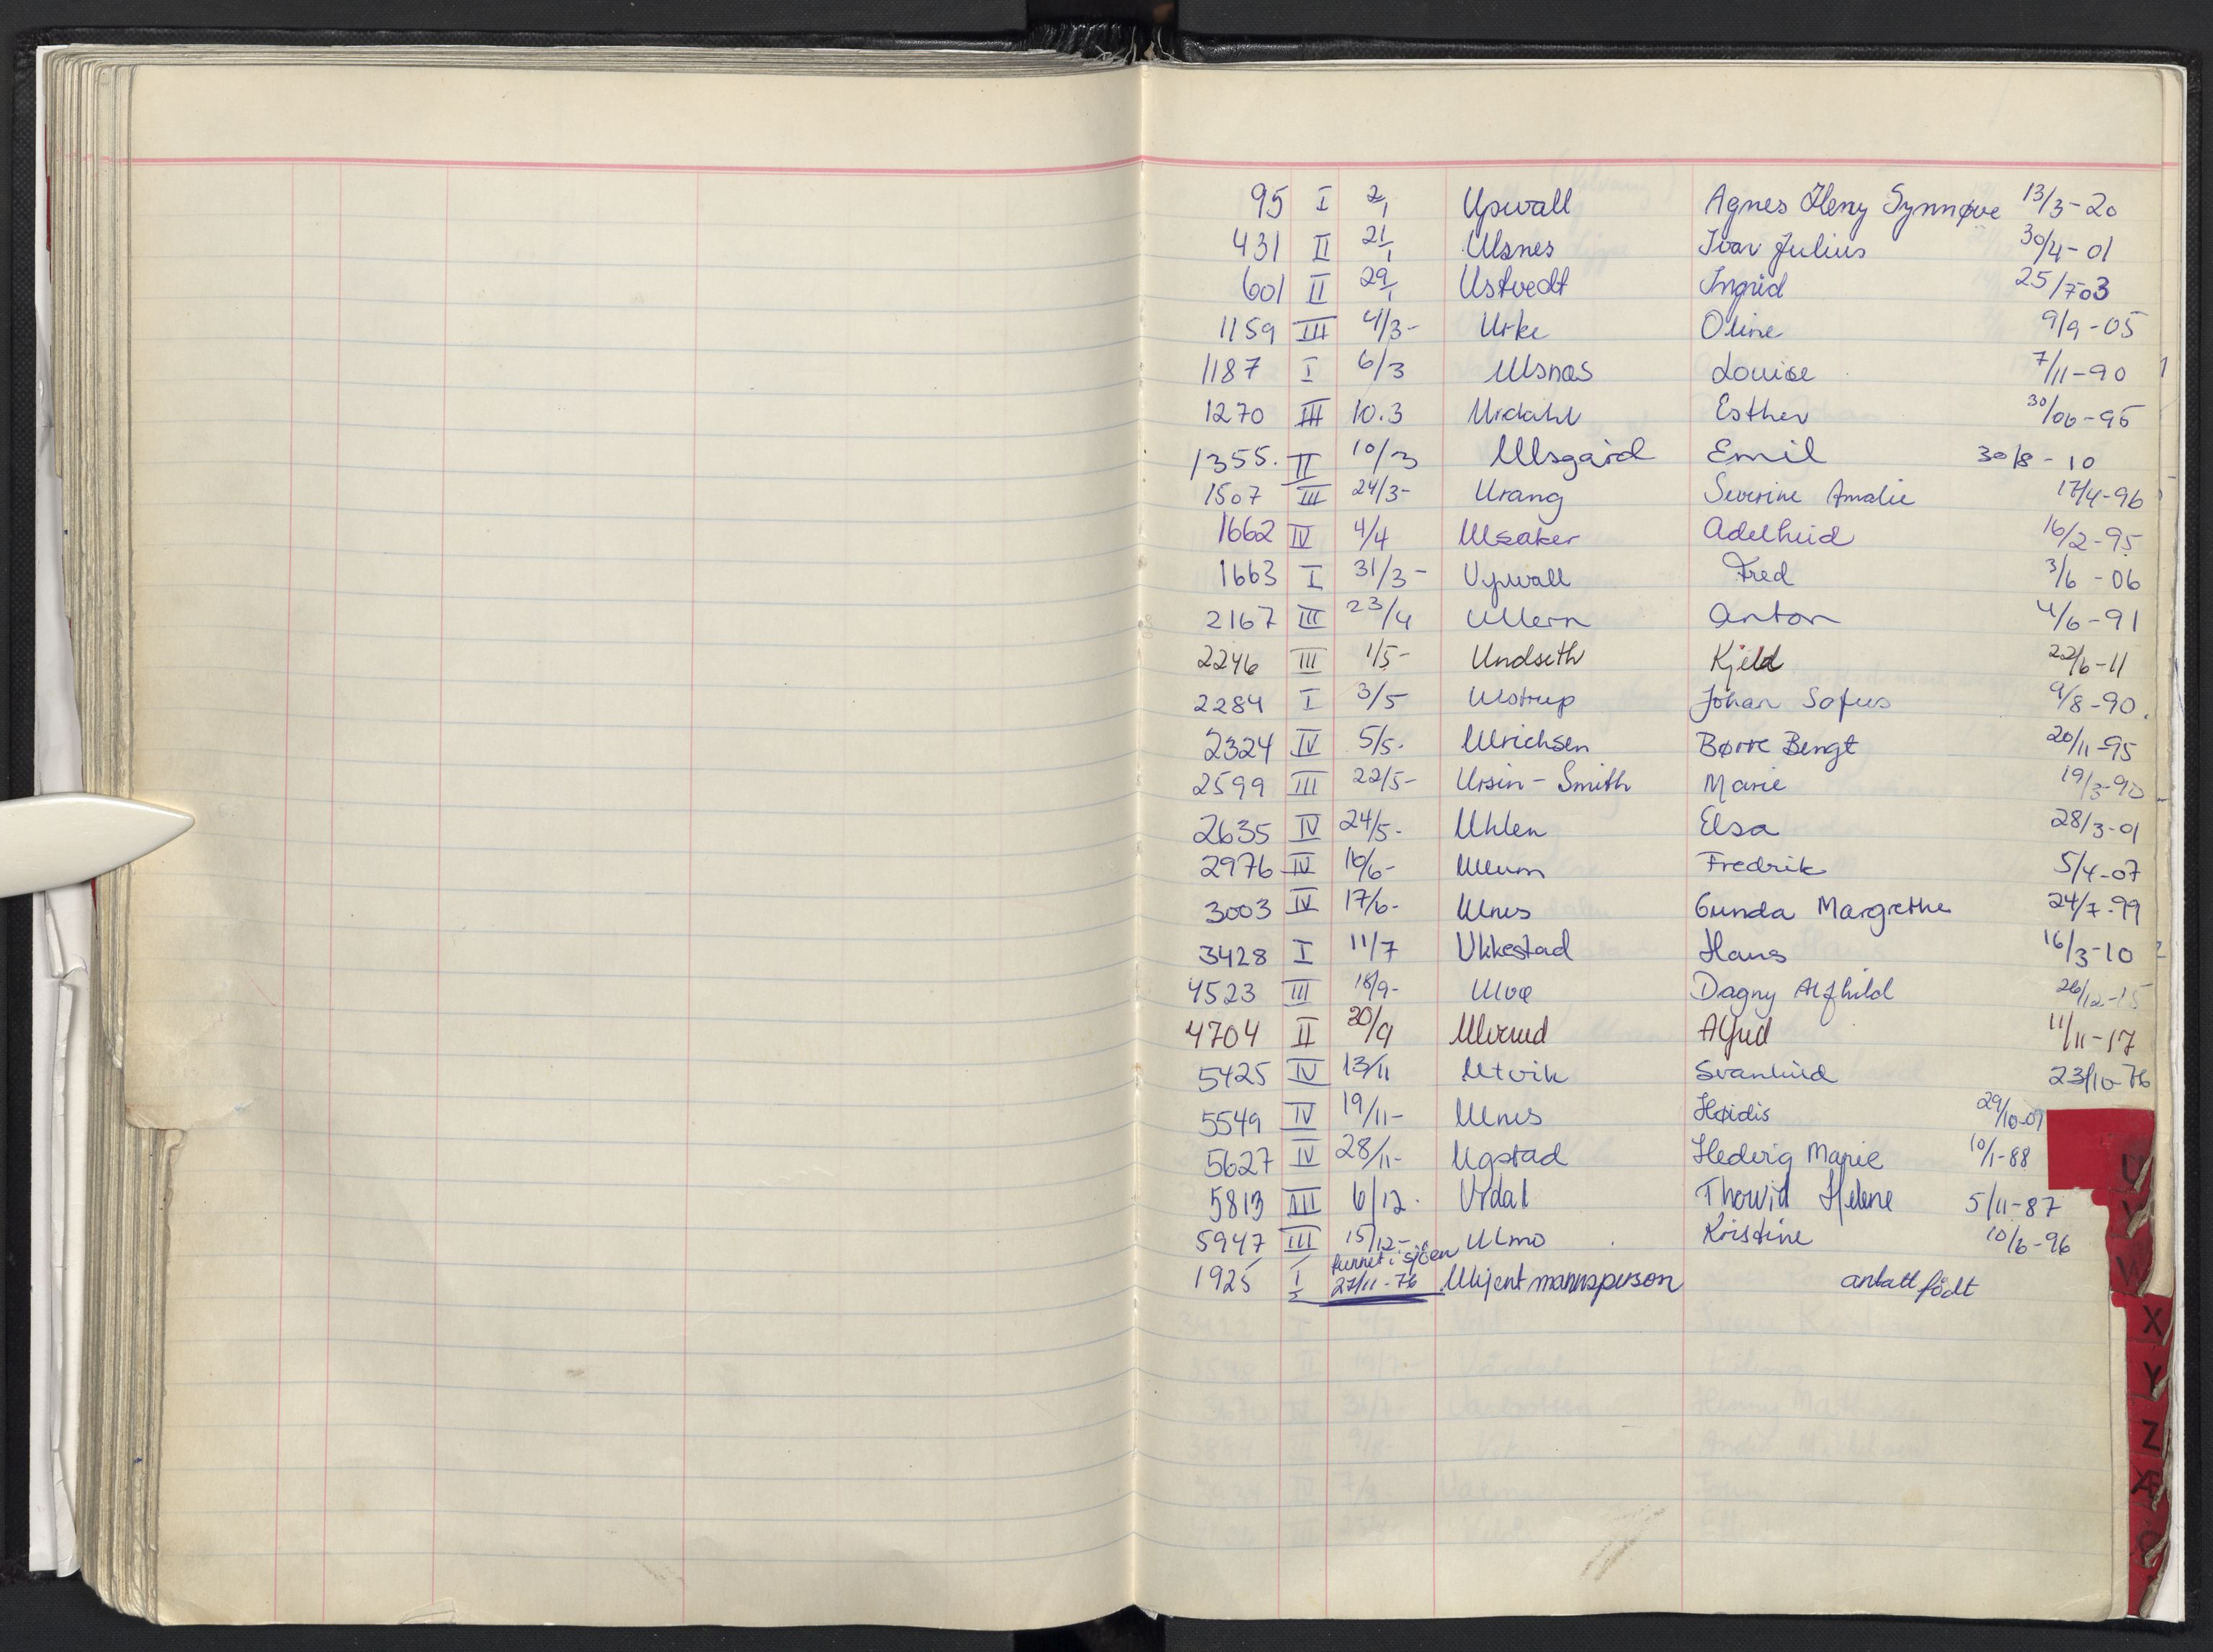 95 I 2/1 Upwall Agnes Heny Synnøve 13/3-20
431 II 21/1 Ulsnes Ivar Julius 30/4-01
601 II 29/1 Ustvedt Ingrid 25/7-03
1159 III 4/3- Urke Oline 9/9-05
1187 I 6/3 Ulsnæs Louise 7/11-90
1270 III 10.3 Urdahl Esther 30/06-95
1355. II 10/3 Ulsgård Emil 30/8-10
1507 III 24/3- Urang Severine Amalie 17/4-96
1662 IV 4/4 Ulsaker Adelheid 16/2-95
1663 I 31/3- Upwall Fred 3/6-06
2167 III 23/4 Ullern Anton 4/6-91
2246 III 1/5- Undseth Kjeld 22/6-11
2284 I 3/5 Ulstrup Johan Sofus 9/8-90.
2324 IV 5/5. Ulrichsen Børre Bengt 20/11-95
2599 III 22/5- Ursin-Smith Marie 19/3-90
2635 IV 24/5- Uhlen Elsa 28/3-01
2976 IV 16/6- Ullum Fredrik 5/4-07
3003 IV 17/6- Ulnes Gunda Margrethe 24/7-99
3428 I 11/7 Ukkestad Hans 16/3-10
4523 III 18/9- Ulvø Dagny Alfhild 26/12-15
4704 II 30/9 Ulverud Alfred 11/11-17
5425 IV 13/11 Utvik Svanhild 23/10-76
5549 IV 19/11- Ulnes Høidis 29/10-07
5627 IV 28/11- Ugstad Hedvig Marie 10/1-88
5813 III 6/12. Urdal Thorvid Helene 5/11-87
5947 III 15/12- Ulmo Kristine 10/6-96
funnet i sjøen
1925 I 27/11-76 Ukjent mannsperson antatt født
U
V
W
X
Y
Z
Æ
Ø